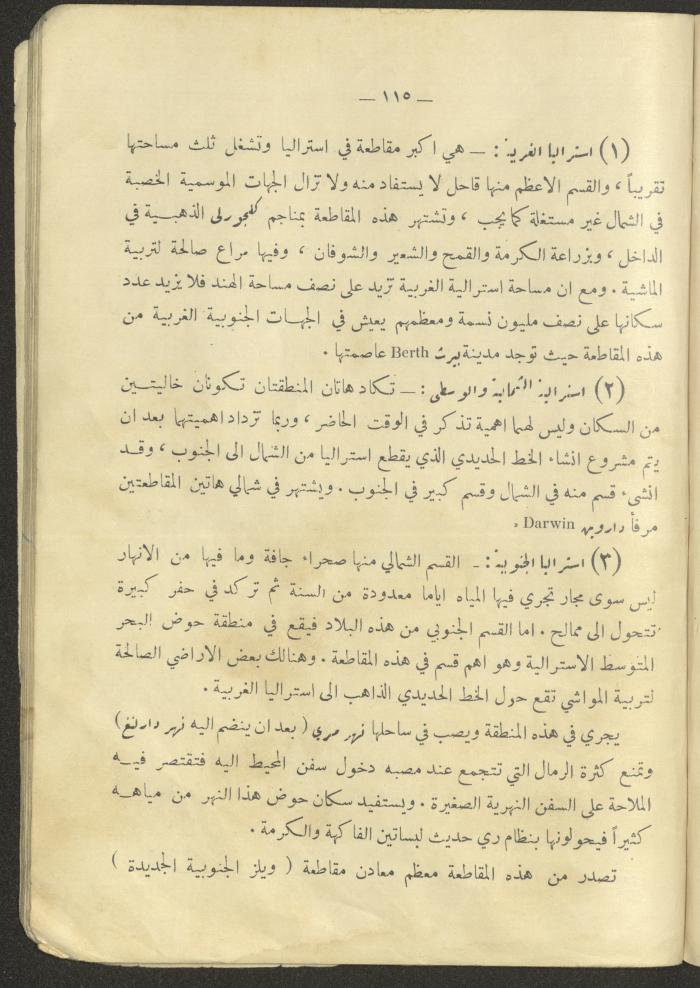 — ١١٥ —
(١) استراليا الغربية : — هي اكبر مقاطعة في استراليا وتشغل ثلث مساحتها
تقريباً ، والقسم الاعظم منها قاحل لا يستفاد منه ولا تزال الجهات الموسمية الخصبة
في الشمال غير مستغلة كما يجب ، وتشتهر هذه المقاطعة بمناجم كلجورلى الذهبية في
الداخل ، وبزراعة الكرمة والقمح والشعير والشوفان ، وفيها مراع صالحة لتربية
الماشية . ومع ان مساحة استرالية الغربية تزيد على نصف مساحة الهند فلا يزيد عدد
سكانها على نصف مليون نسمة ومعظمهم يعيش في الجهات الجنوبية الغربية من
هذه المقاطعة حيث توجد مدينة بيرث Berth عاصمتها .
(٢) استرالية الشمالية والوسطى : — تكاد هاتان المنطقتان تكونان خاليتين
من السكان وليس لهما اهمية تذكر في الوقت الحاضر ، وربما تزداد اهميتهما بعد ان
يتم مشروع انشاء الخط الحديدي الذي يقطع استراليا من الشمال الى الجنوب ، وقد
انشىء قسم منه في الشمال وقسم كبير في الجنوب . ويشتهر في شمالي هاتين المقاطعتين
مرفأ داروين Darwin .
(٣) استراليا الجنوبية : — القسم الشمالي منها صحراء جافة وما فيها من الانهار
ليس سوى مجار تجري فيها المياه اياما معدودة من السنة ثم تركد في حفر كبيرة
تتحول الى ممالح . اما القسم الجنوبي من هذه البلاد فيقع في منطقة حوض البحر
المتوسط الاسترالية وهو اهم قسم في هذه المقاطعة . وهنالك بعض الاراضي الصالحة
لتربية المواشي تقع حول الخط الحديدي الذاهب الى استراليا الغربية .
يجري في هذه المنطقة ويصب في ساحلها نهر مري ( بعد ان ينضم اليه نهر دارلنغ )
وتمنع كثرة الرمال التي تتجمع عند مصبه دخول سفن المحيط اليه فتقتصر فيه
الملاحة على السفن النهرية الصغيرة . ويستفيد سكان حوض هذا النهر من مياهه
كثيراً فيحولونها بنظام ري حديث لبساتين الفاكهة والكرمة .
تصدر من هذه المقاطعة معظم معادن مقاطعة ( ويلز الجنوبية الجديدة )